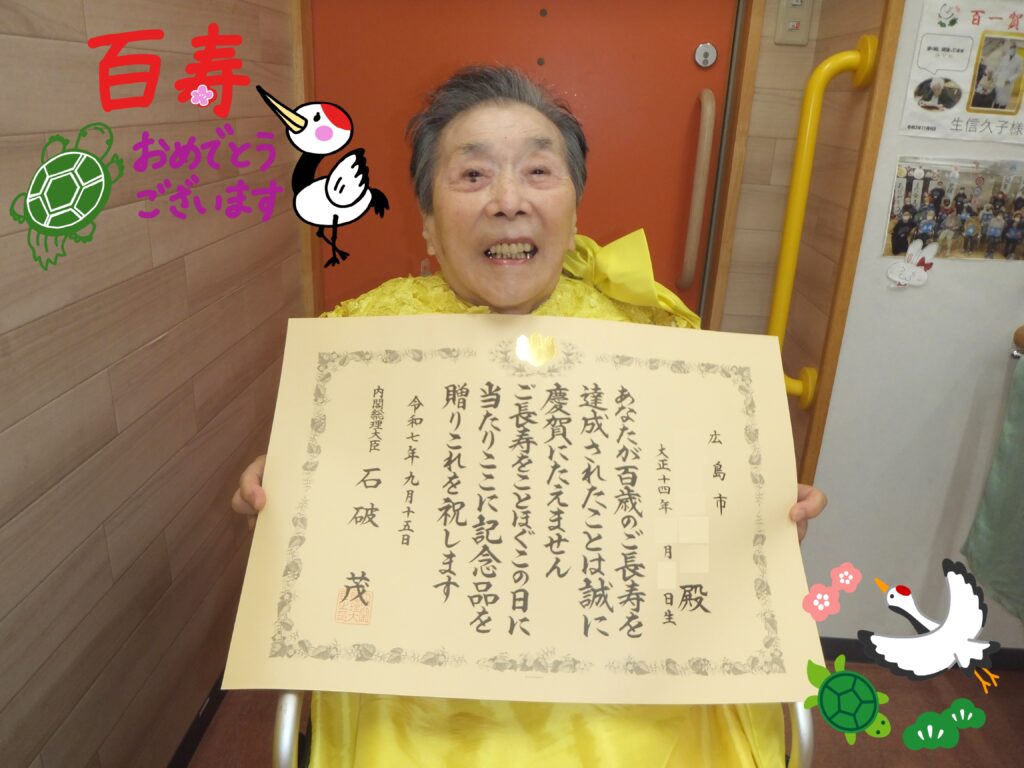 百寿
おめでとう
ございます
広島市
殿
大正十四年 月 日生
あなたが百歳のご長寿を
達成されたことは誠に
慶賀にたえません
ご長寿をことほぐこの日に
当たりここに記念品を
贈りこれを祝します
令和七年九月十五日
内閣総理大臣 石破 茂
百一賀
生信久子様